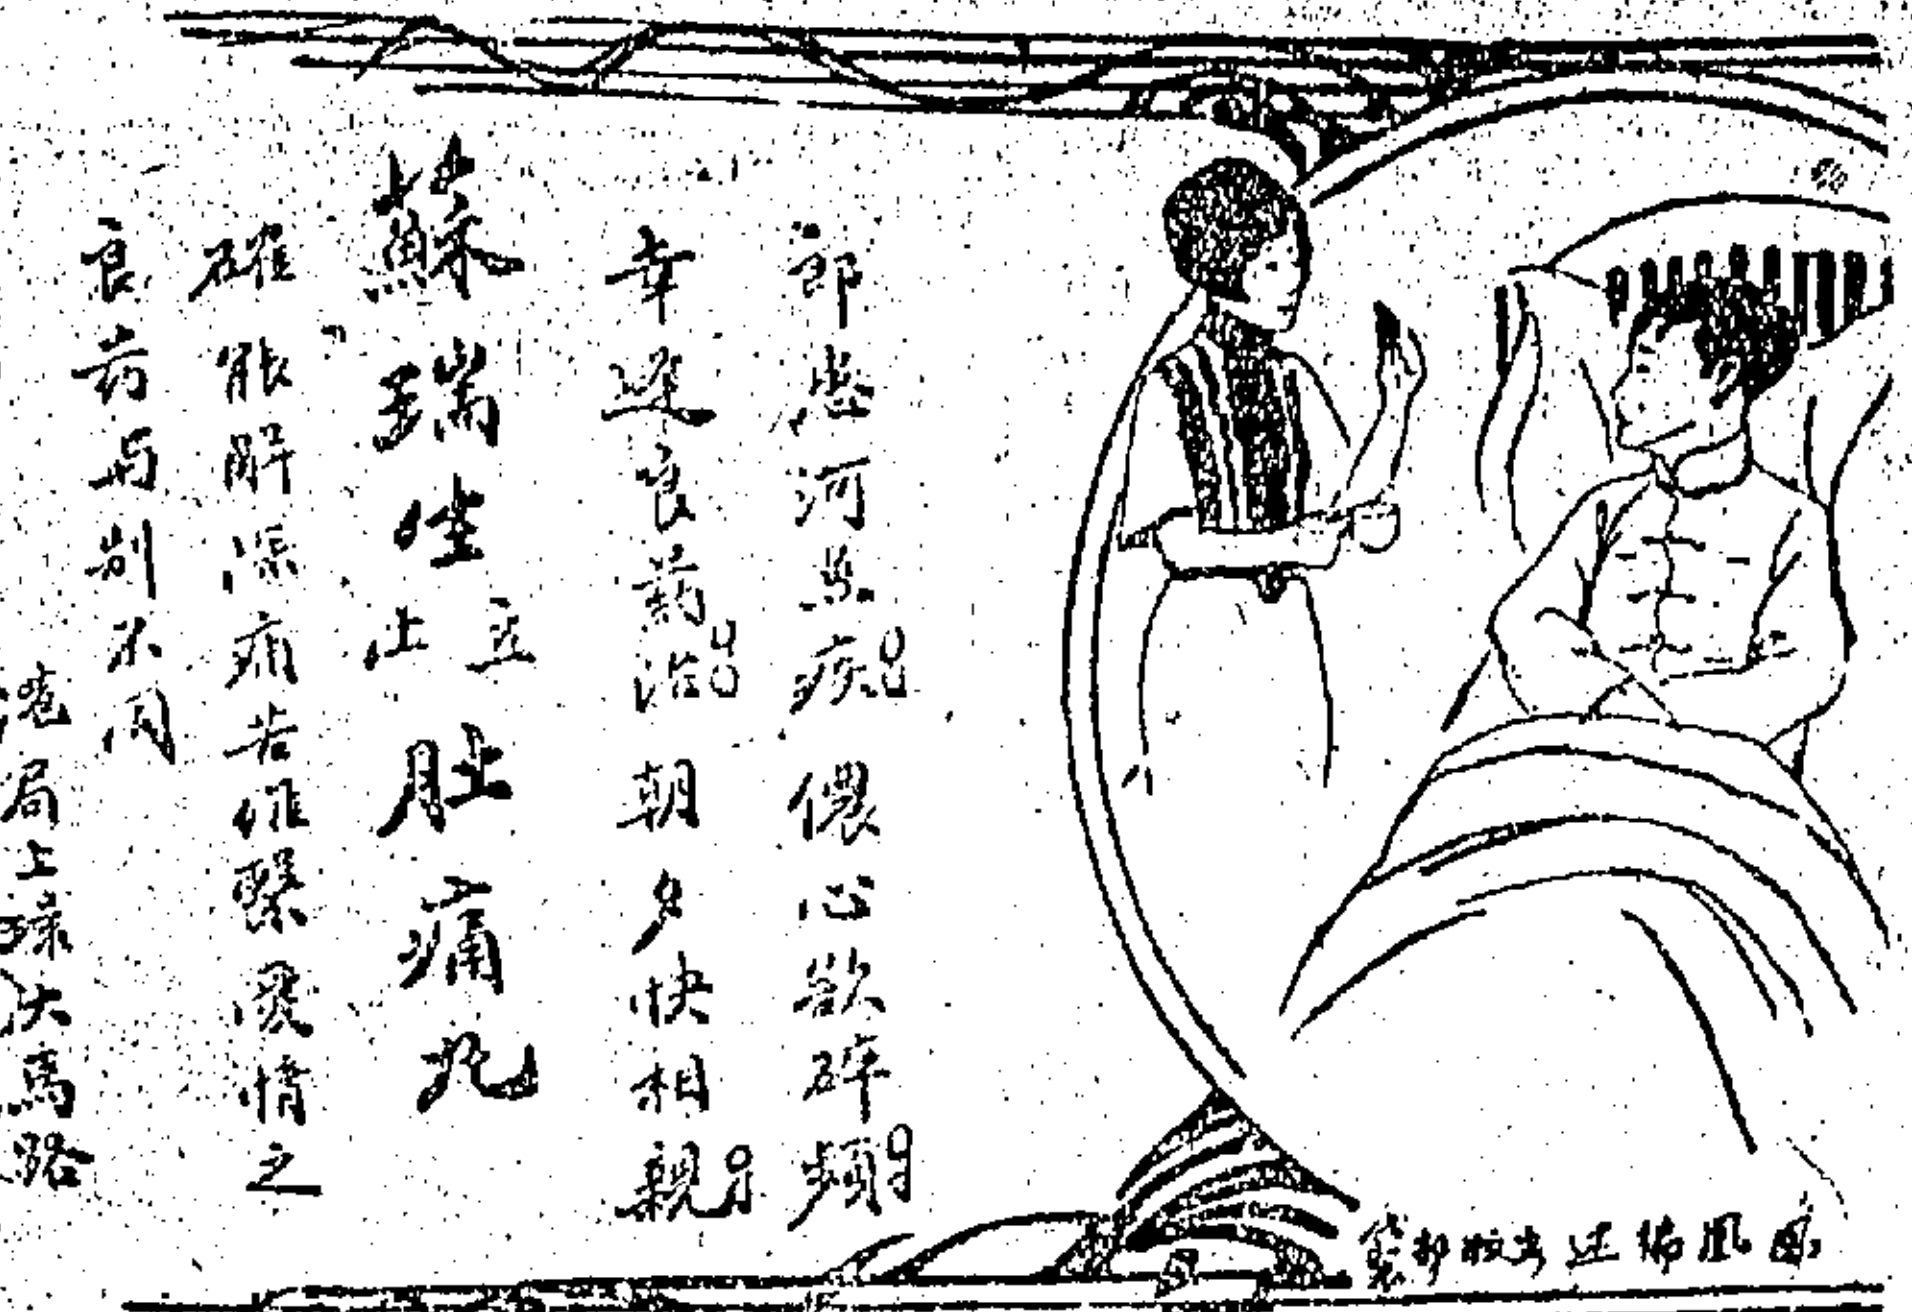 郎患河魚疾
儂心欲碎頻
幸逢良药治
朝夕快相親
蘇瑞生
立止
肚痛丸
確能解深痛苦維繫愛情之
良药与别不同
港局上環大馬路